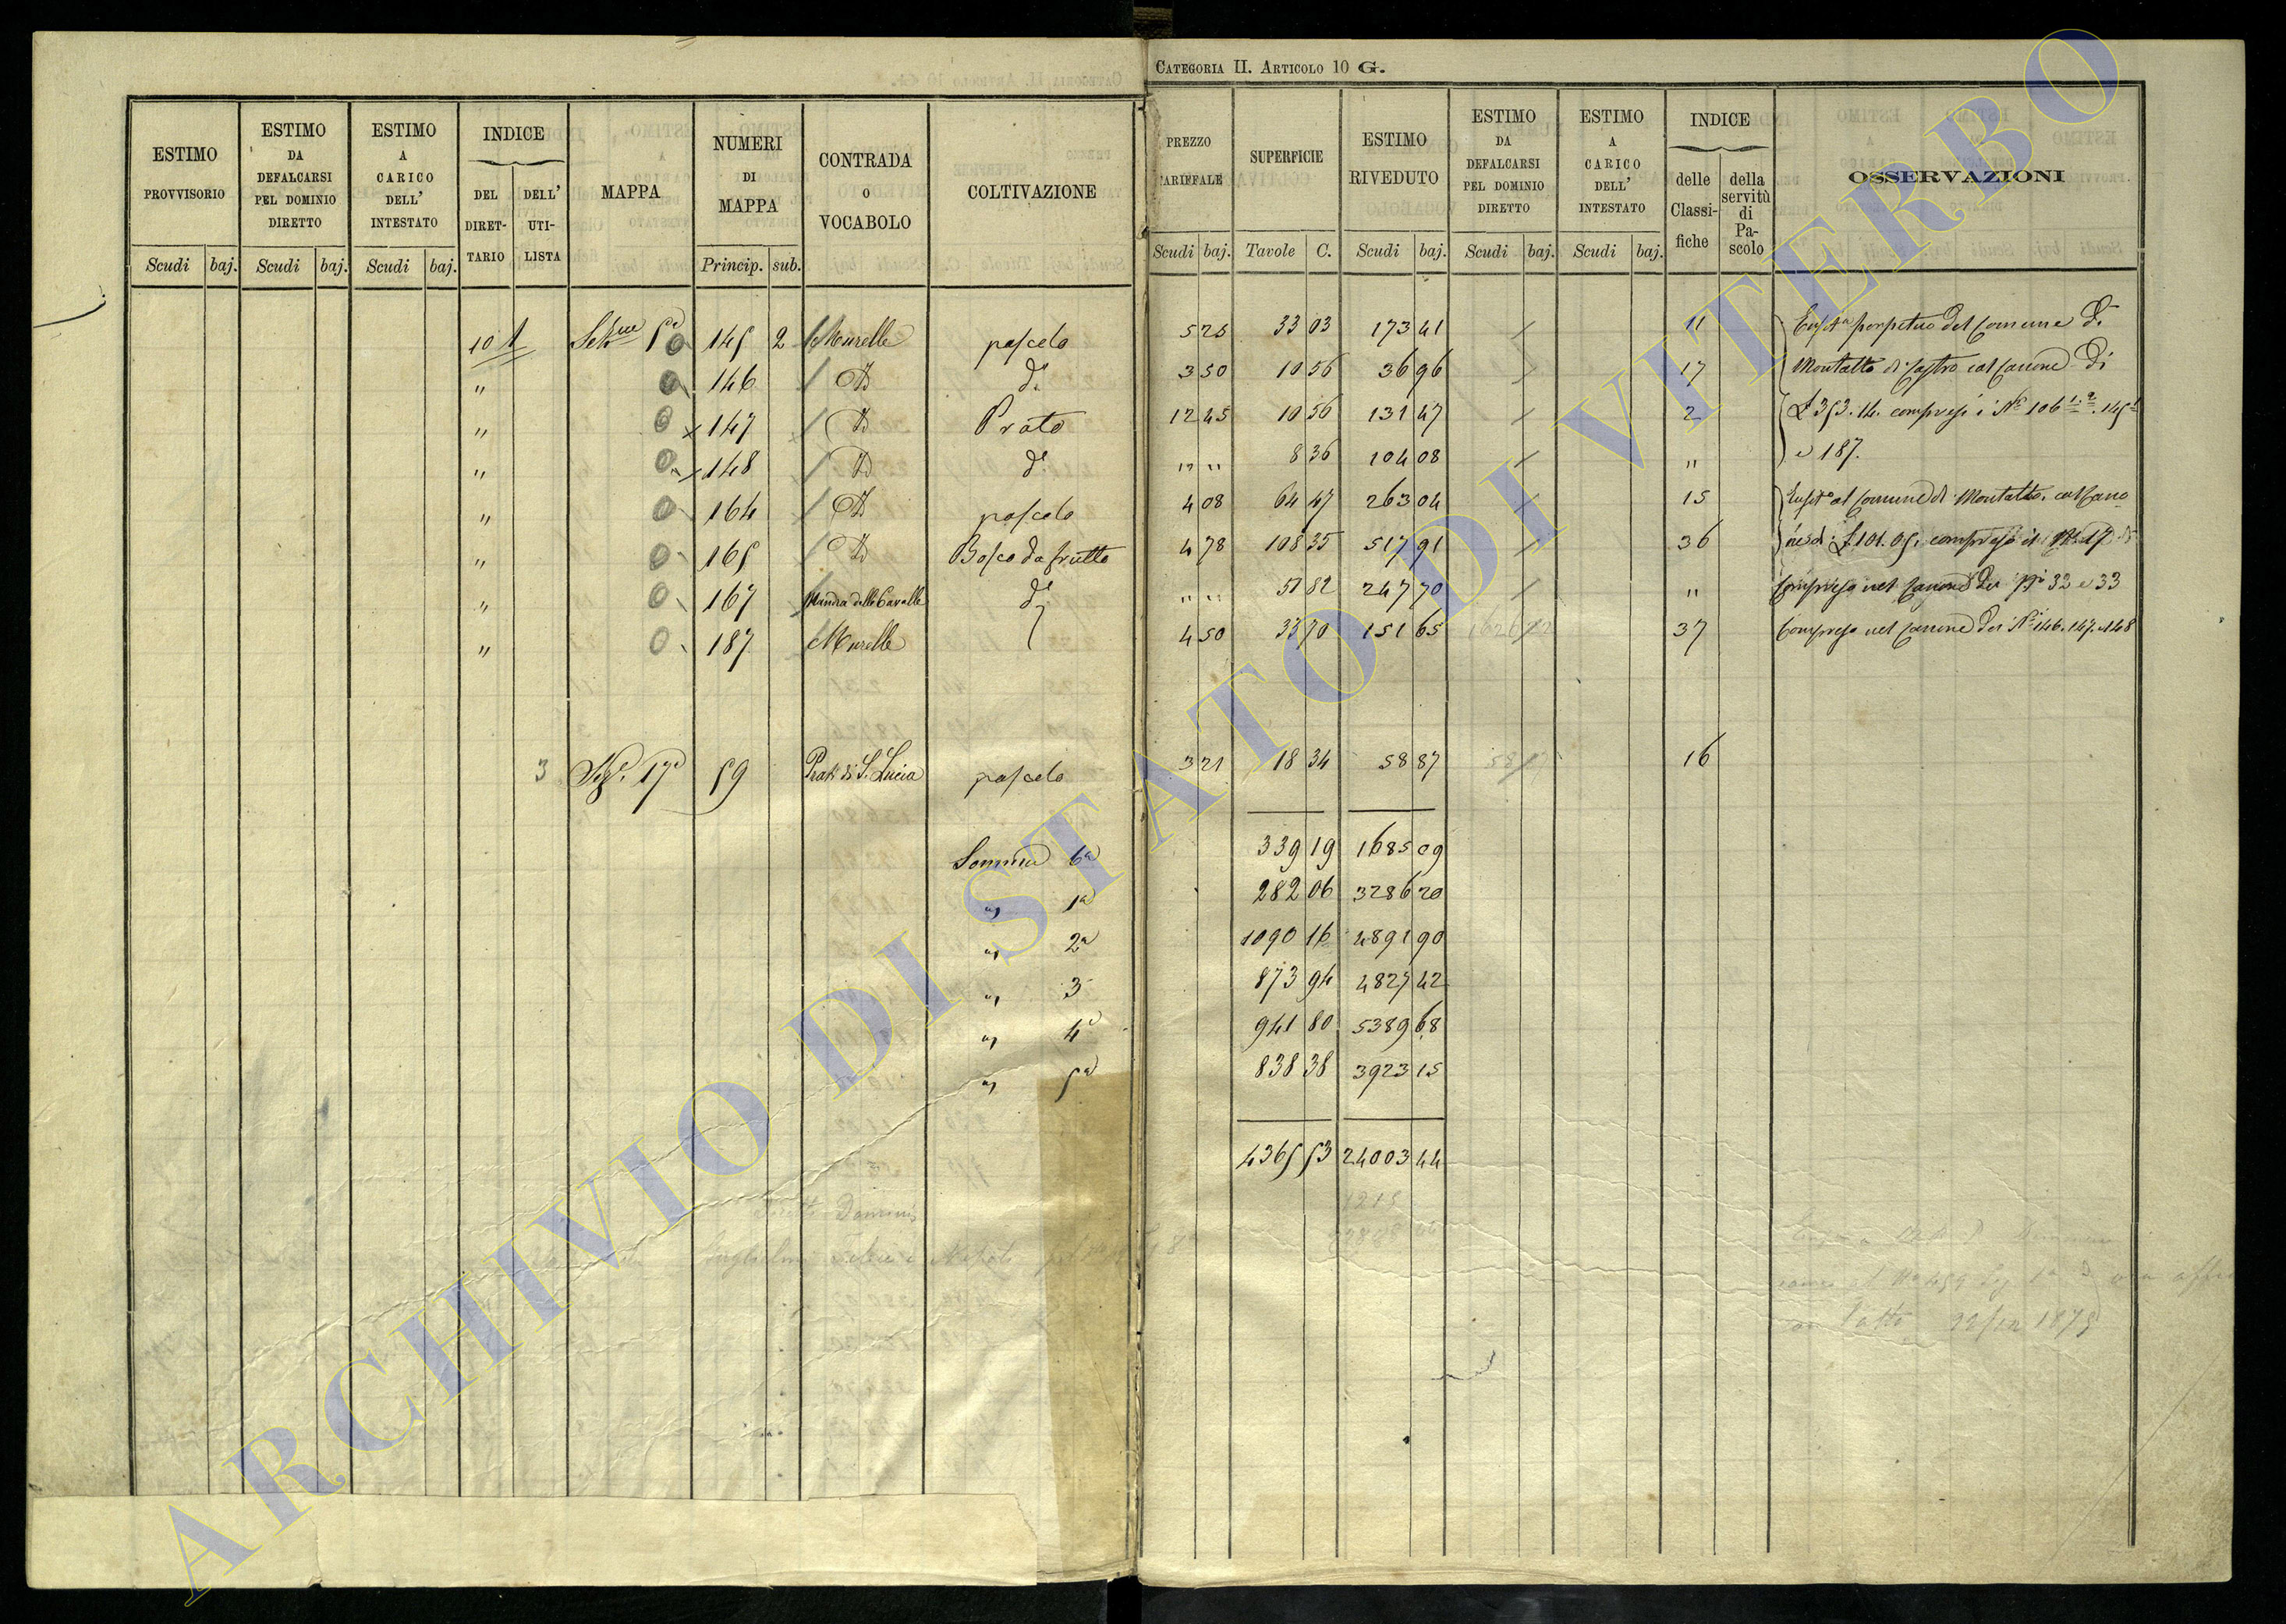 CATEGORIA II. ARTICOLO 10 G.
ESTIMO PROVVISORIO
ESTIMO DA DEFALCARSI PEL DOMINIO DIRETTO
ESTIMO A CARICO DELL' INTESTATO
INDICE
DEL DIRETTARIO
DELL' UTILISTA
MAPPA
NUMERI DI MAPPA
CONTRADA O VOCABOLO
COLTIVAZIONE
PREZZO TARIFFALE
SUPERFICIE
ESTIMO RIVEDUTO
ESTIMO DA DEFALCARSI PEL DOMINIO DIRETTO
ESTIMO A CARICO DELL' INTESTATO
INDICE
delle Classifiche
della servitù di Pascolo
OSSERVAZIONI
Scudi baj. Scudi baj. Scudi baj. Princip. sub. Scudi baj. Tavole C. Scudi baj. Scudi baj. Scudi baj.
10 1 Sez.ne 5a 145 2 Murelle pascolo 5 25 33 03 173 41 11 perpetuo del Comune di
" 146 D d° 3 50 10 56 36 96 17 Montalto di Castro col Canone di
" 147 D Prato 12 45 10 56 131 47 2 £ 353.14. compresi i N.i 106 1.2. 145
" 148 D d° " " 8 36 104 08 " e 187.
" 164 D pascolo 4 08 64 47 263 04 15 al Comune di Montalto, col Cano
" 165 D Bosco da frutto 4 78 108 35 517 91 36 ne di £ 101.05. compreso il
" 167 Mandra delle Cavalle d° " " 51 82 247 70 " Compreso nel Canone dei N.i 32 e 33
" 187 Murelle 4 50 33 70 151 65 37 Compreso nel Canone dei N.i 146.147.148
3 Sez. 17a 59 Prati di S. Lucia pascolo 3 21 18 34 58 87 16
Somma 6a 339 19 1685 09
" 1a 282 06 3286 20
" 2a 1090 16 4891 90
" 3 873 94 4827 42
" 4a 941 80 5389 68
" 5a 838 38 3923 15
4365 53 24003 44
ARCHIVIO DI STATO DI VITERBO